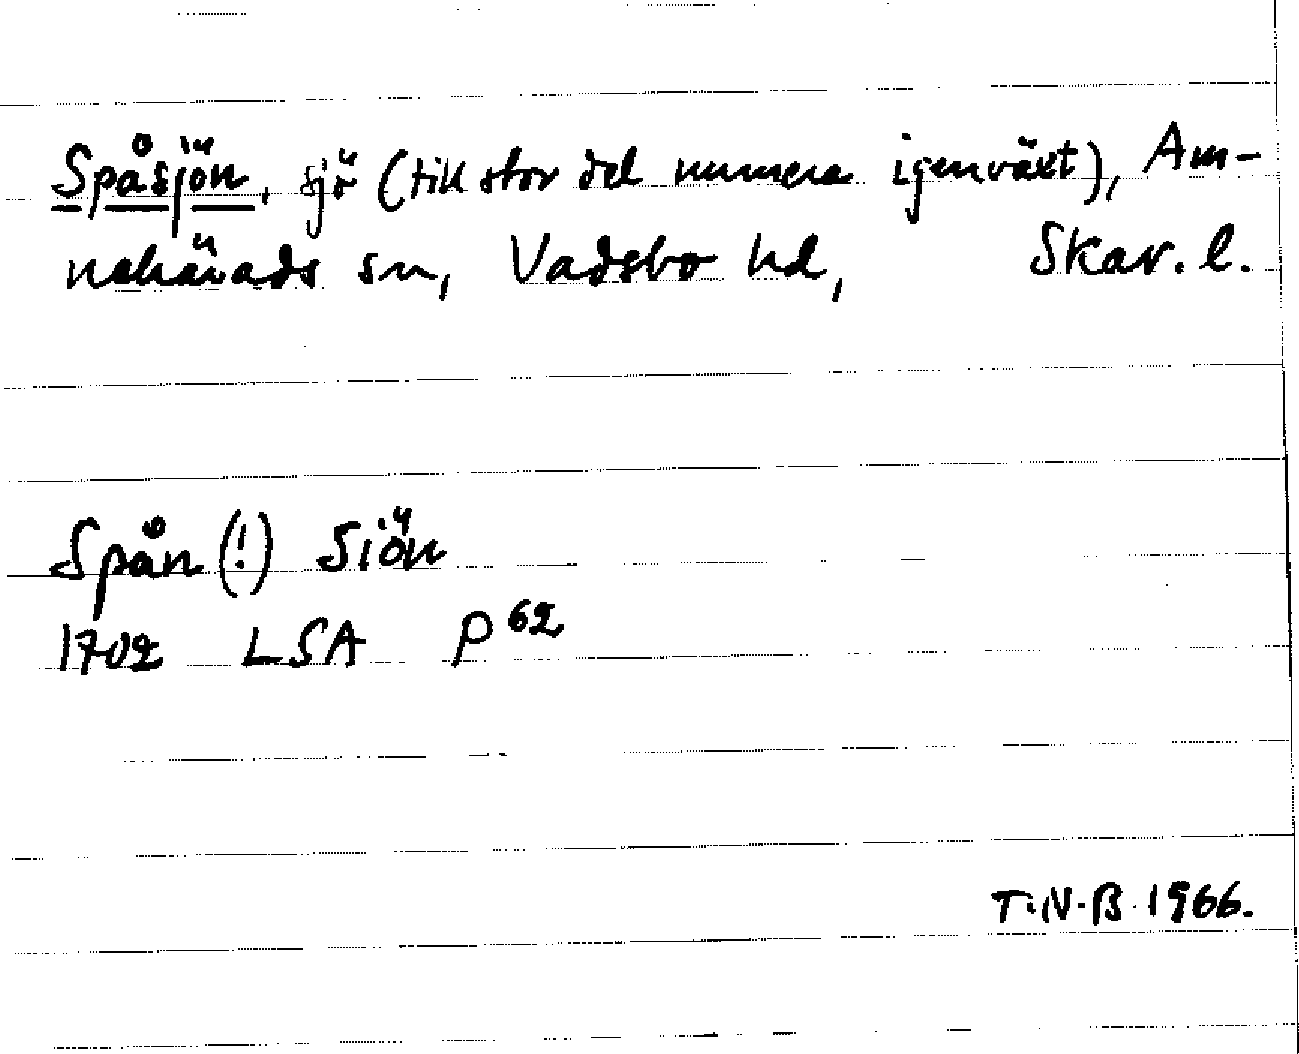 Spåsjön, sjö (till stor del numera igenväxt), Am-
nehärads sn, Vadsbo hd, Skar. l.
Spån (!) Siön
1702 LSA P 62
T.N.B. 1966.